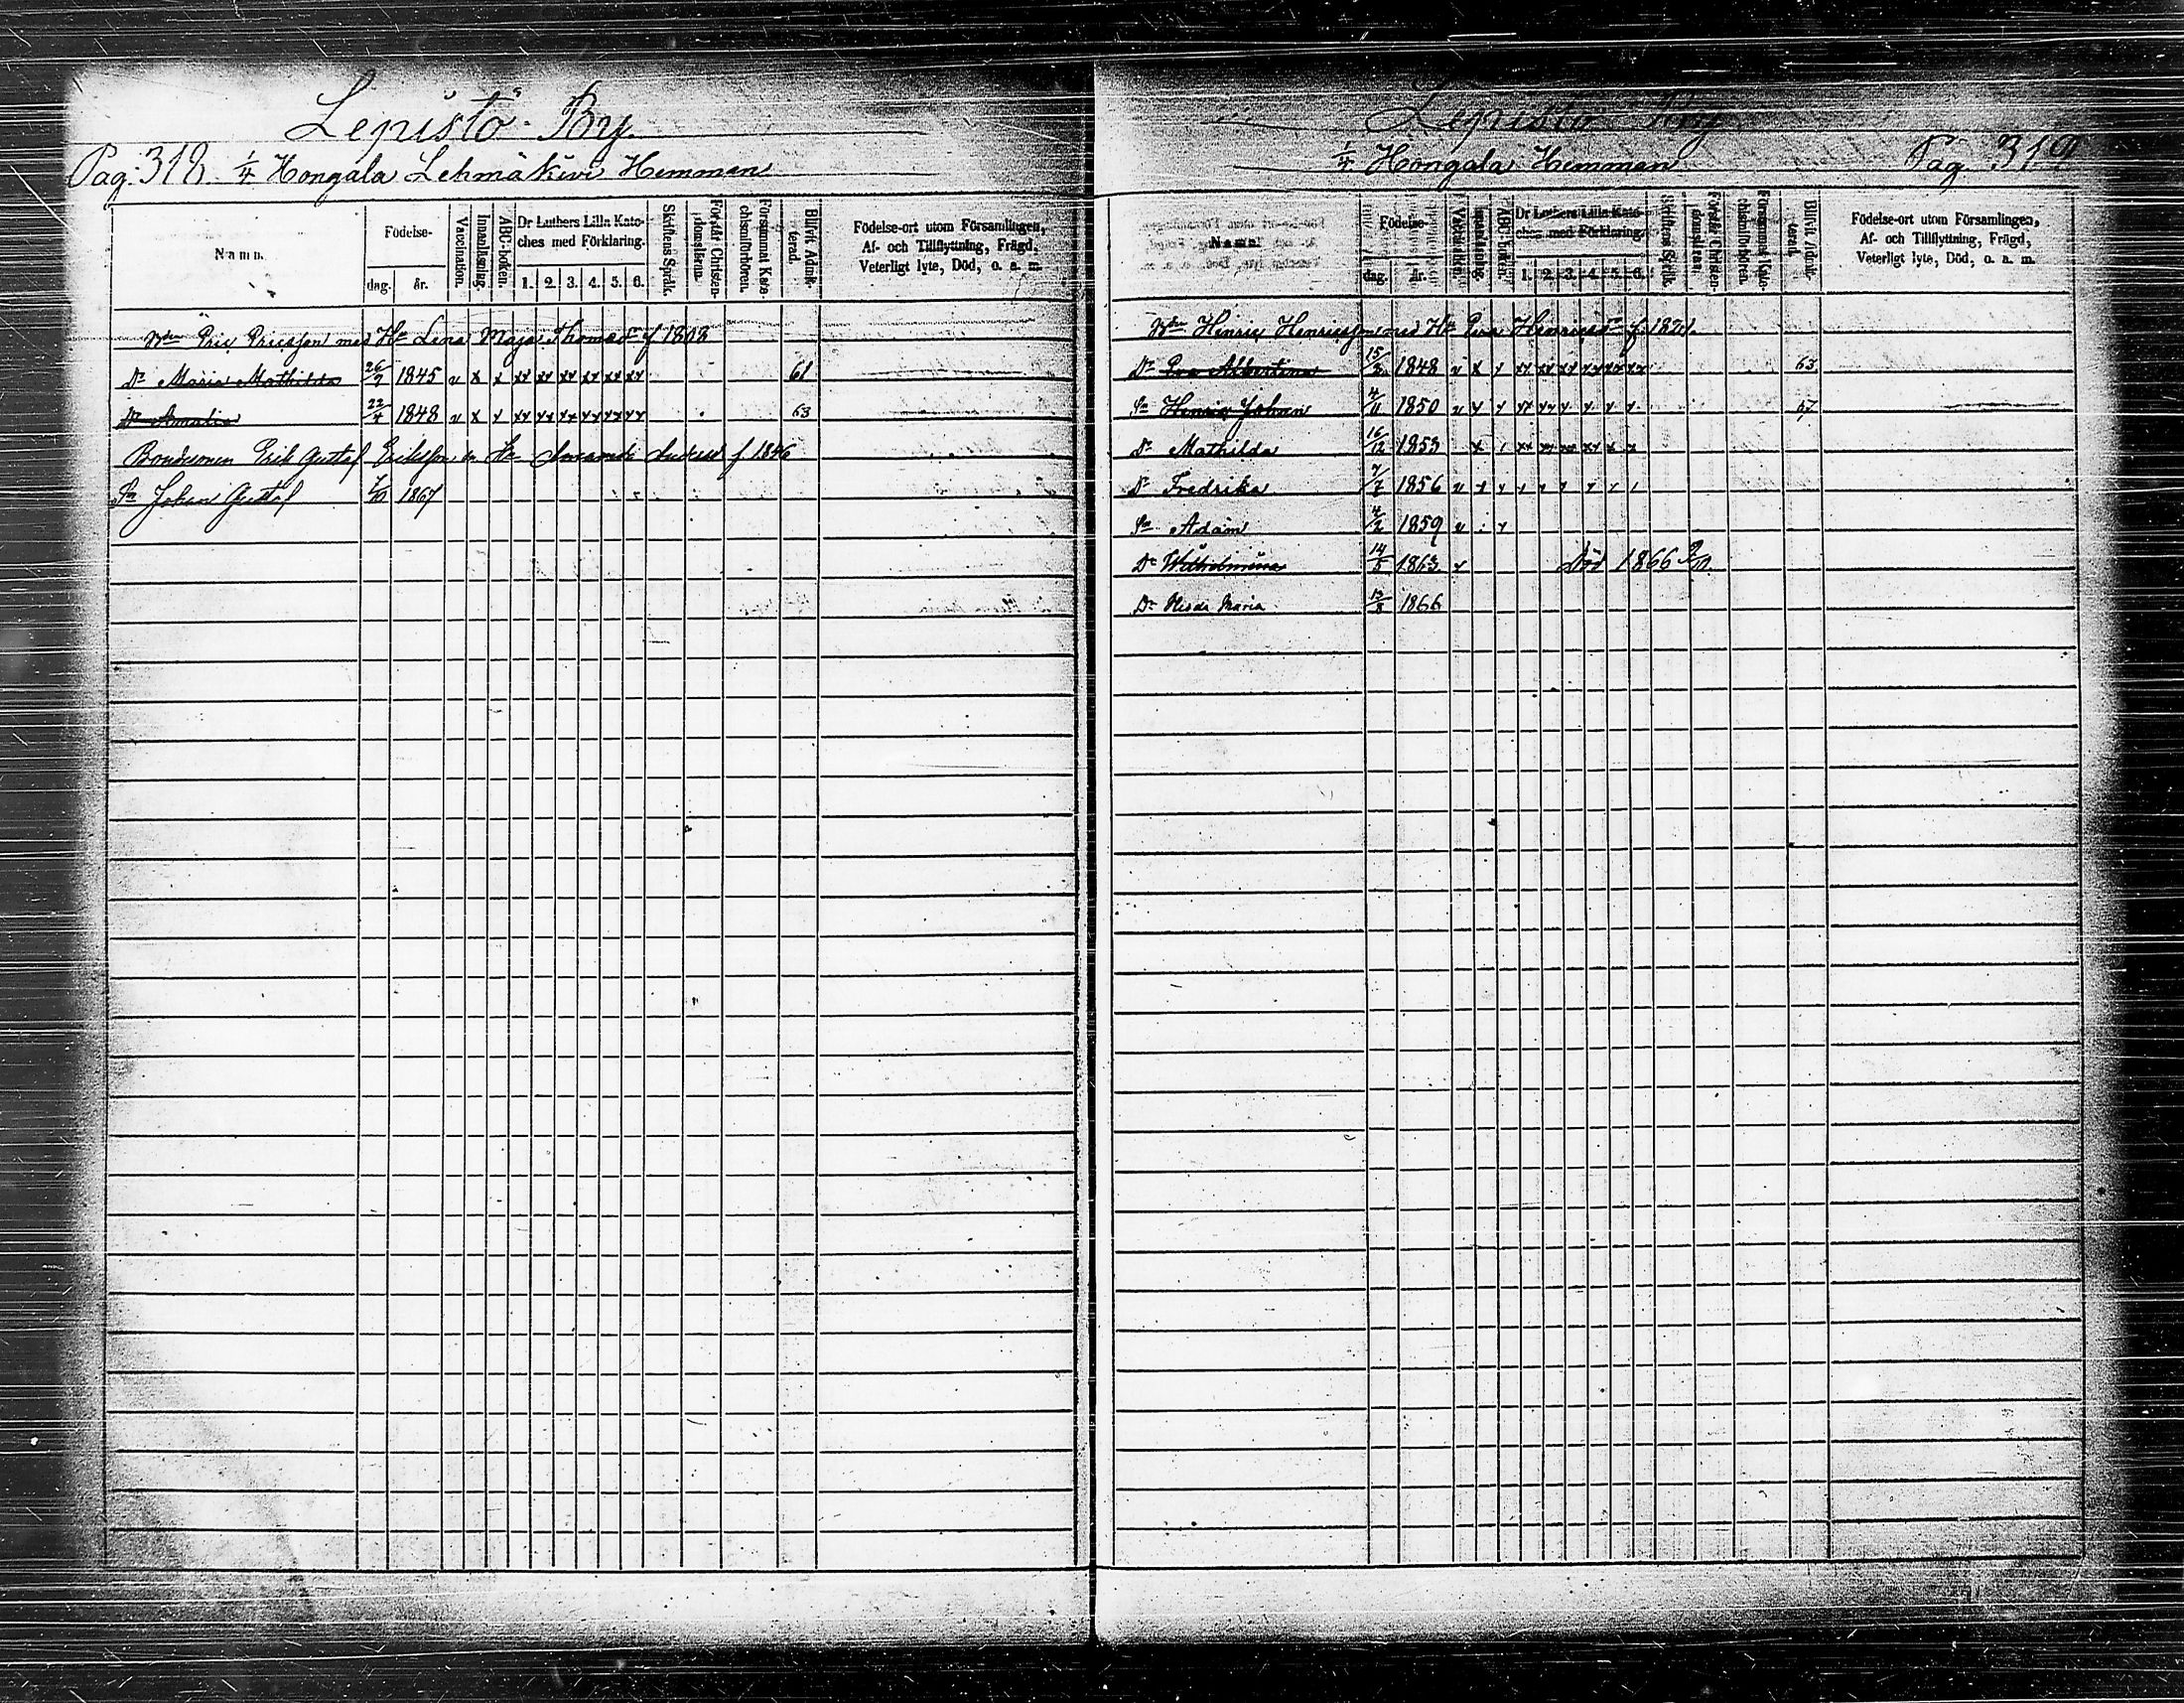 Lepistö By.
Pag: 318. 1/4 Hongala Lehmäkivi Hemman
Namn.
Födelse-
dag. år.
Vaccination.
Innanläsning.
ABC-boken.
Dr Luthers Lilla Kate-
ches med Förklaring.
1. 2. 3. 4. 5. 6.
Skriftens Språk.
Förstår Christen-
domslärna.
Försummat Kate-
chismiförhören.
Blifvit Admit-
terad.
Födelse-ort utom Församlingen,
Af- och Tillflyttning, Frägd,
Veterligt lyte, Död, o. a. m.
Eric Ericsson med Hu Lena Maja Thomasdr f 1808
Dr Maria Mathilda 26/7 1845 v x x xx xx xx xx xx xx 61
Dr Amalia 22/4 1848 v x x xx xx xx xx xx xx 63
Bondsonen Erik Gustaf Eriksson Hu Amanda Andersd f 1846
Sn Johan Gustaf 7/10 1867
Lepistö By
1/4 Hongala Hemman Pag. 319
Namn.
Födelse-
dag. år.
Vaccination.
Innanläsning.
ABC-boken.
Dr Luthers Lilla Kate-
ches med Förklaring.
1. 2. 3. 4. 5. 6.
Skriftens Språk.
Förstår Christen-
domslärna.
Försummat Kate-
chismiförhören.
Blifvit Admit-
terad.
Födelse-ort utom Församlingen,
Af- och Tillflyttning, Frägd,
Veterligt lyte, Död, o. a. m.
Henric Henricsson med Hu Eva Henricsdr f. 1821.
Dr Eva Albertina 15/2 1848 v x x xx xx xx xx xx xx 63
Sn Henric Johan 4/11 1850 v x x xx xx x x x x 67
Dr Mathilda 16/12 1853 x xx xx xx xx x x
Dr Fredrika 7/7 1856 v x x
Sn Adam 4/2 1859 v
Dr Wilhelmina 14/5 1863 v Död 1866
Dr Maria 13/8 1866